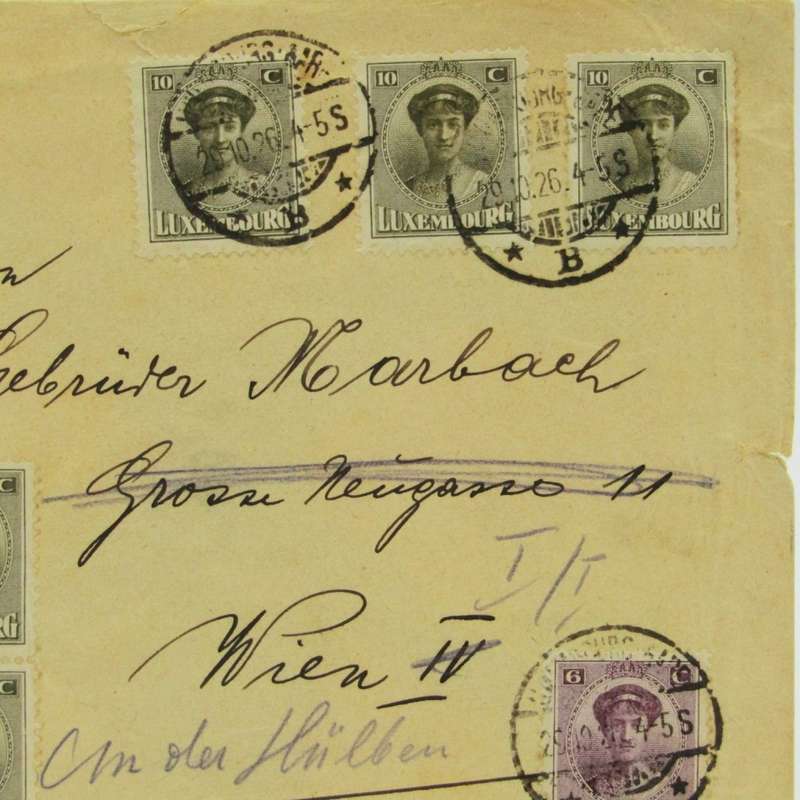 10 C 10 C 10 C
LUXEMBOURG LUXEMBOURG LUXEMBOURG
26.10.26.4-5S 26.10.26.4-5S
B B
Gebrüder Marbach
Grosse Neugasse 11
I/I
Wien IV
An der Hülben
C
C
6 C
4-5S